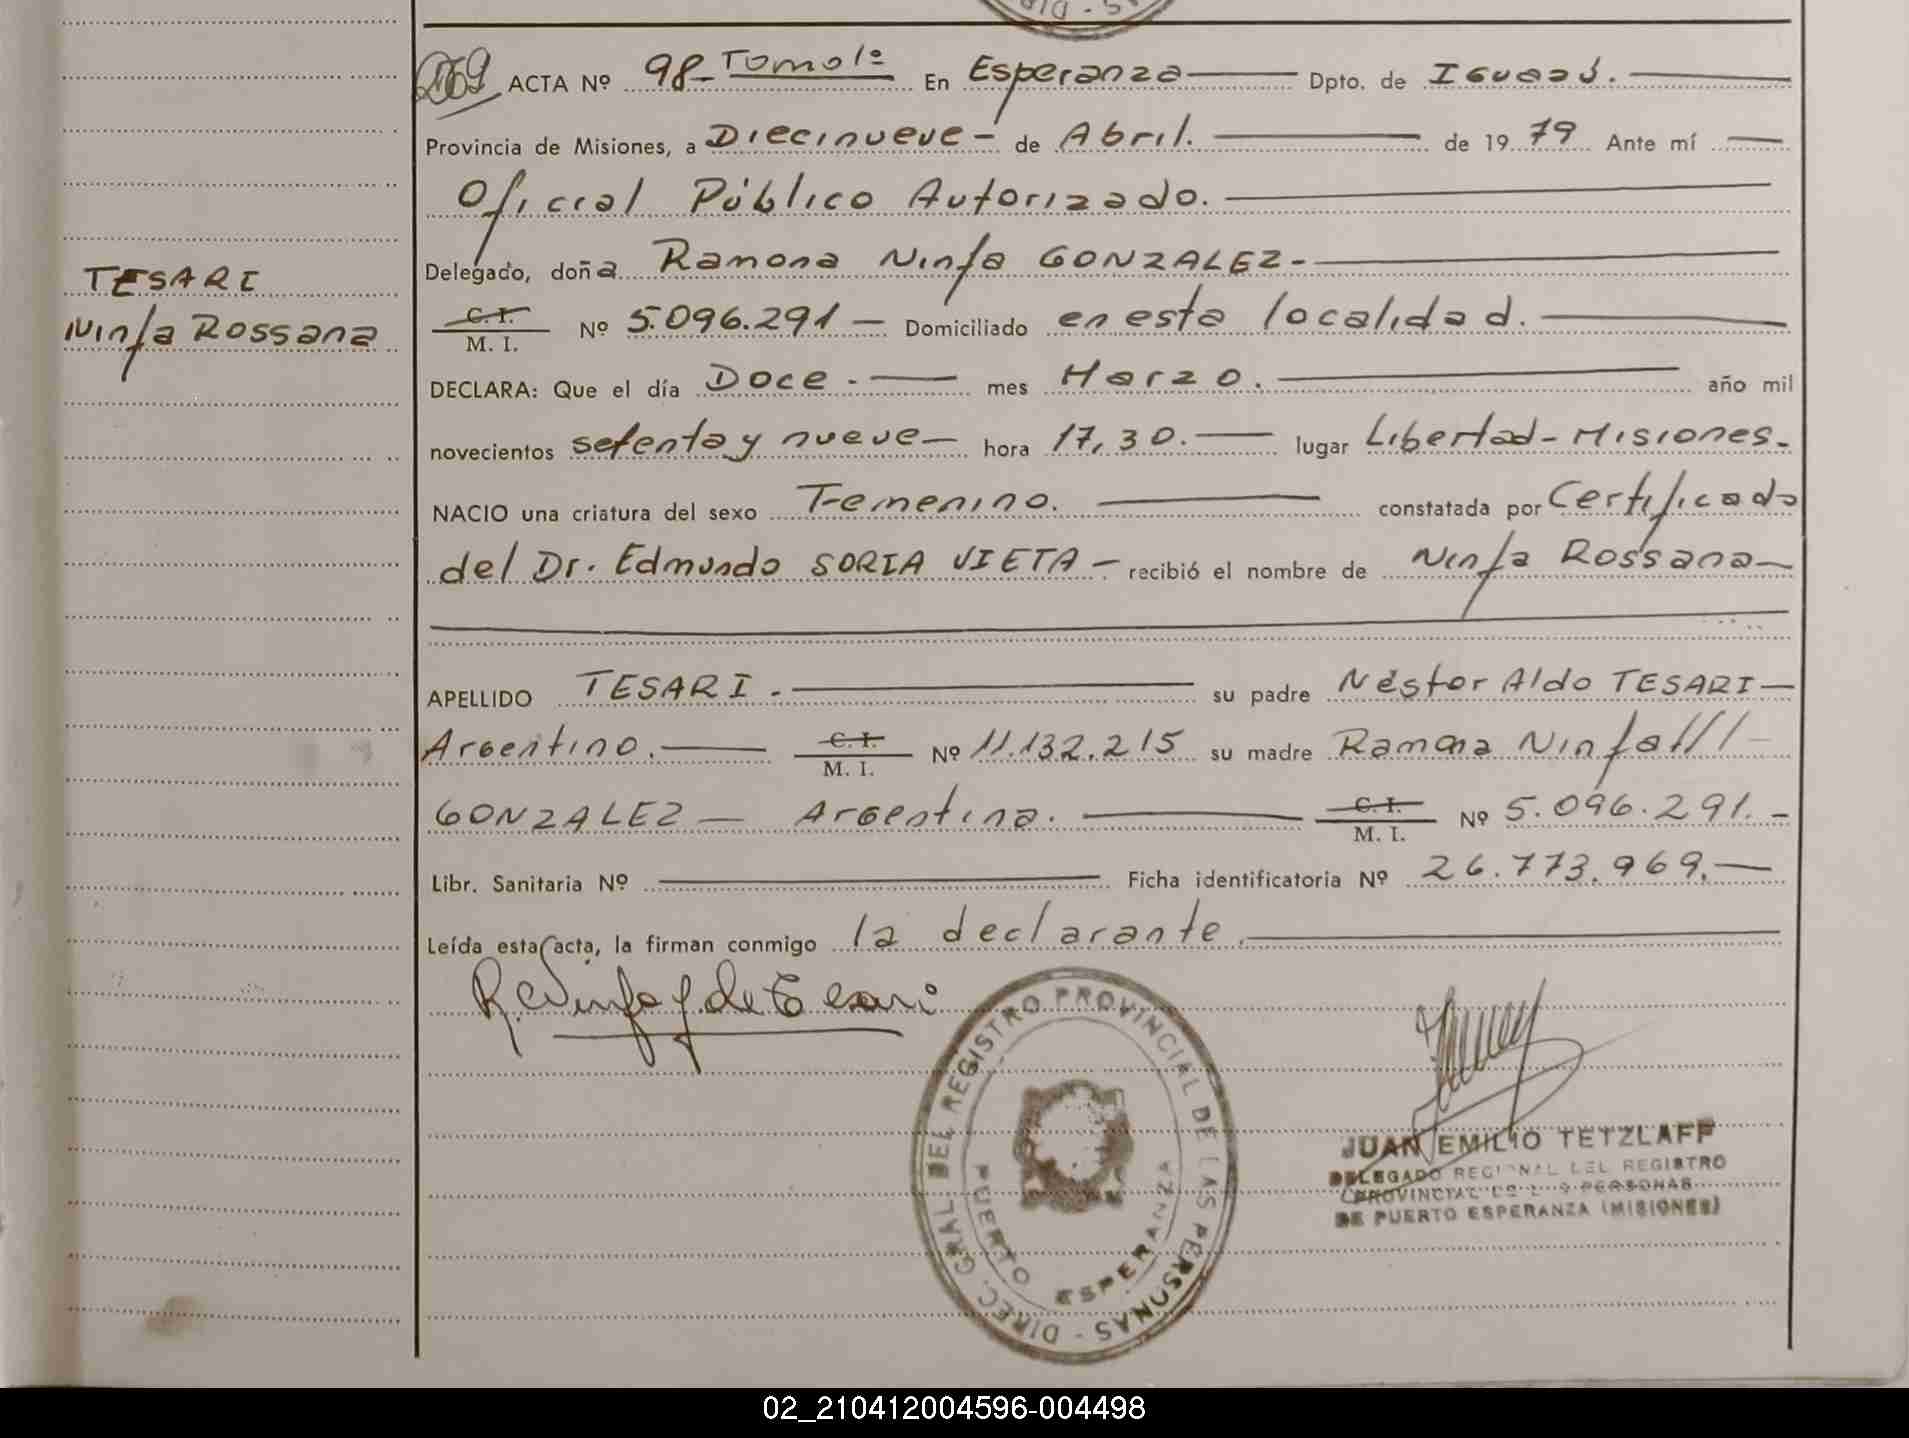 TESARI
Ninfa Rossana
ACTA Nº 98- Tomo 1º En Esperanza Dpto. de Iguazú.
Provincia de Misiones, a Diecinueve - de Abril. de 1979 Ante mí
Oficial Público Autorizado.
Delegado, doña Ramona Ninfa GONZALEZ.-
C. I.
M. I. Nº 5.096.291 - Domiciliado en esta localidad.
DECLARA: Que el día Doce. - mes Marzo. año mil
novecientos setenta y nueve - hora 17,30. - lugar Libertad - Misiones.
NACIO una criatura del sexo Femenino. constatada por Certificado
del Dr. Edmundo SORIA VIETA - recibió el nombre de Ninfa Rossana -
APELLIDO TESARI. - su padre Néstor Aldo TESARI -
Argentino. - C. I. M. I. Nº 11.132.215 su madre Ramona Ninfa ///-
GONZALEZ - Argentina. C. I. M. I. Nº 5.096.291. -
Libr. Sanitaria Nº Ficha identificatoria Nº 26.773.969. -
Leída esta acta, la firman conmigo la declarante.
R. Ninfa g. de Tesari
DIREC. GRAL DEL REGISTRO PROVINCIAL DE LAS PERSONAS -
PUERTO ESPERANZA
JUAN EMILIO TETZLAFF
DELEGADO REGIONAL DEL REGISTRO
PROVINCIAL DE LAS PERSONAS
DE PUERTO ESPERANZA (MISIONES)
02_210412004596-004498